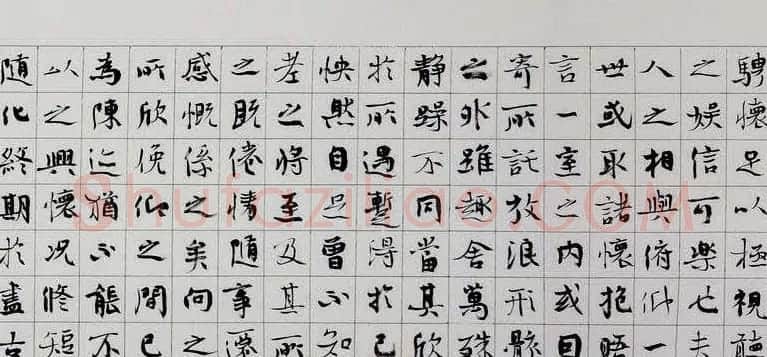 騁懷足以極視聽
之娛信可樂也夫
人之相與俯仰一
世或取諸懷抱晤
言一室之內或因
寄所託放浪形骸
之外雖趣舍萬殊
靜躁不同當其欣
於所遇暫得於己
怏然自足曾不知
老之將至及其所
之既倦情隨事遷
感慨係之矣向之
所欣俛仰之間已
為陳迹猶不能不
以之興懷況脩短
隨化終期於盡古